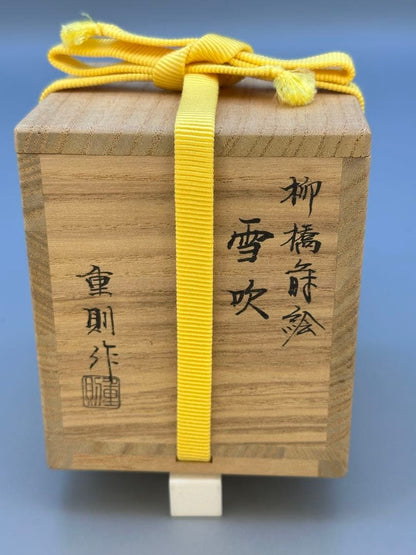 柳橋蒔絵
雪吹
重則作
重則